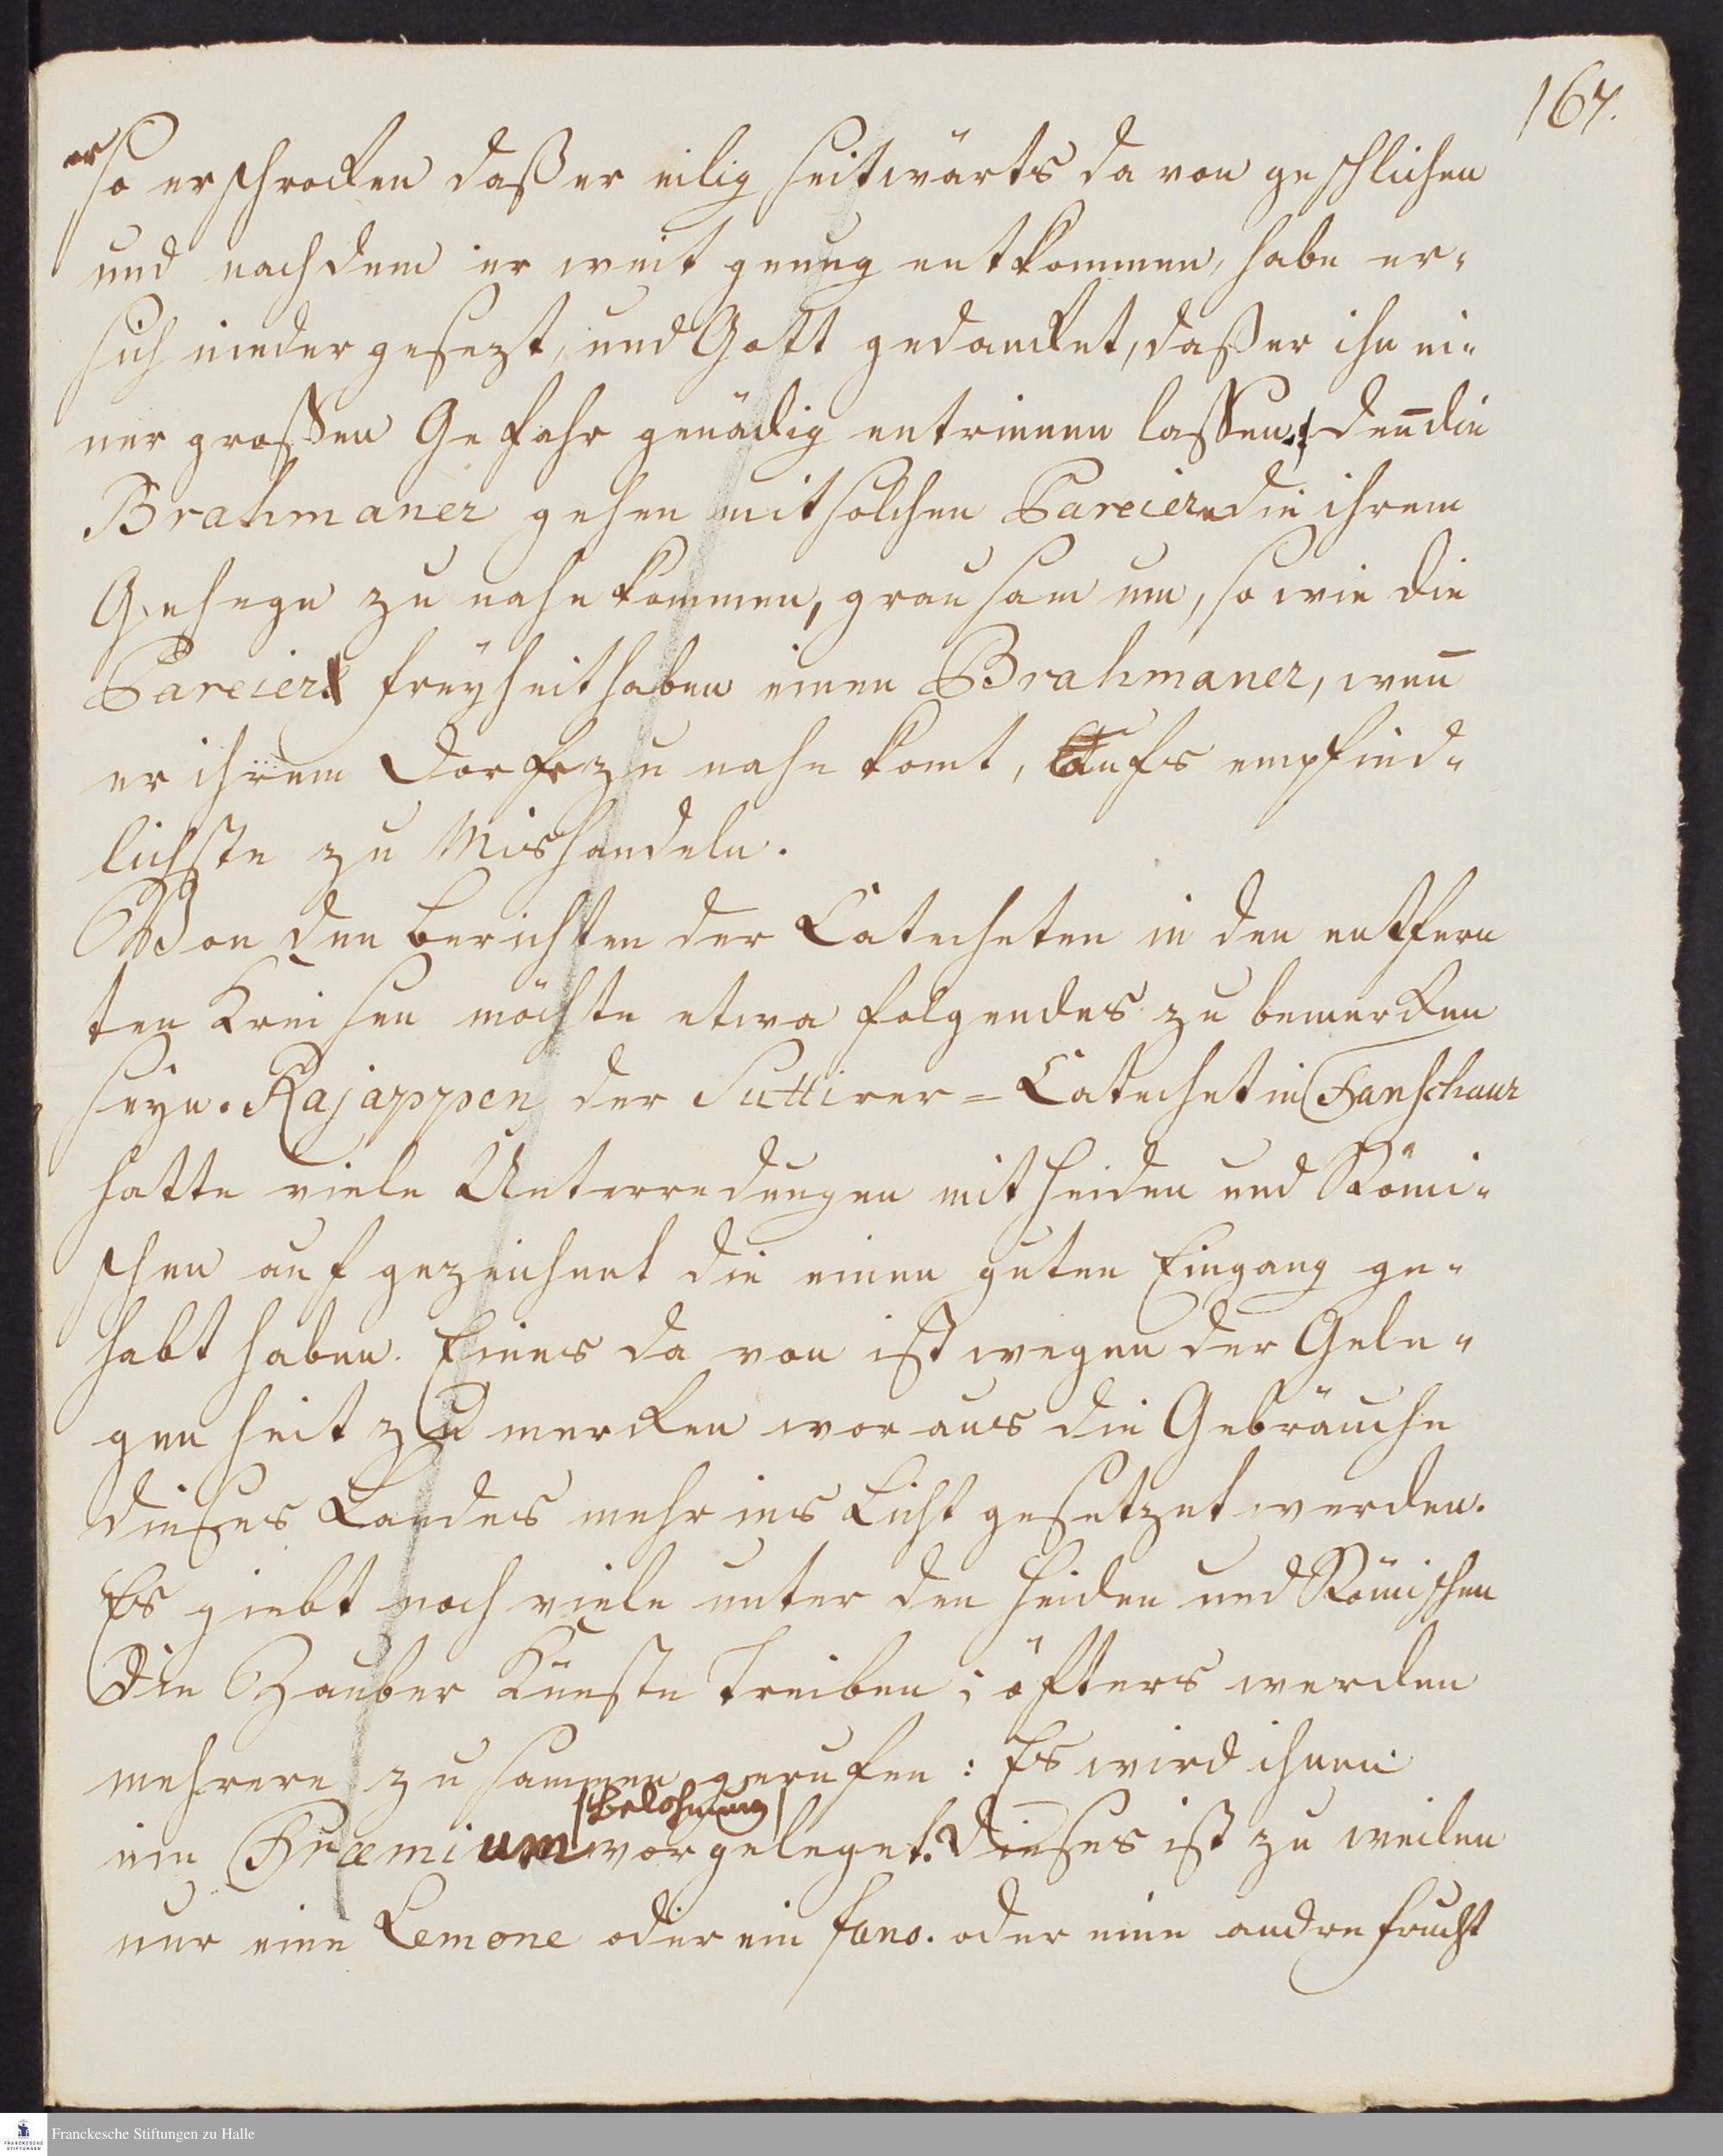 167.
er so erschrocken daß er eilig seitwärts da von geschlichen
und nach dem er weit genug entkommen, habe er-
sich nieder gesezt, und Gott gedancket, daß er ihn ei-
ner großen Gefahr genädig entrinnen laßen; den̄ die
Brahmaner gehen mit solchen Pareiern die ihrem
Gehege zu nahe kommen, grausam um, so wie die
Pareier freÿheit haben einen Brahmaner, wen̄
er ihrem Dorfe zu nahe komt, aufs empfind-
lichste zu Mishandeln.
Von den Berichten der Catecheten in den entfern
ten Kreisen möchte etwa folgendes zu bemercken
seyn. Rajappen der Suttirer=Catechet in Tanschaur
hatte viele Unterredungen mit Heiden und Römi-
schen auf gezeichnet die einen guten Eingang ge-
habt haben. Eines da von ist wegen der Gele-
gen heit zu mercken woraus die Gebräuche
dieses Landes mehr ins Licht gesetzet werden.
Es giebt noch viele unter den Heiden und Römischen
die Zauber Künste treiben; öfters werden
mehrere zu sammen gerufen: Es wird ihnen
Belohnung
ein Præmium vorgeleget. Dieses ist zu weilen
nur eine Lemone oder ein fano. oder eine andre frucht
Franckesche Stiftungen zu Halle